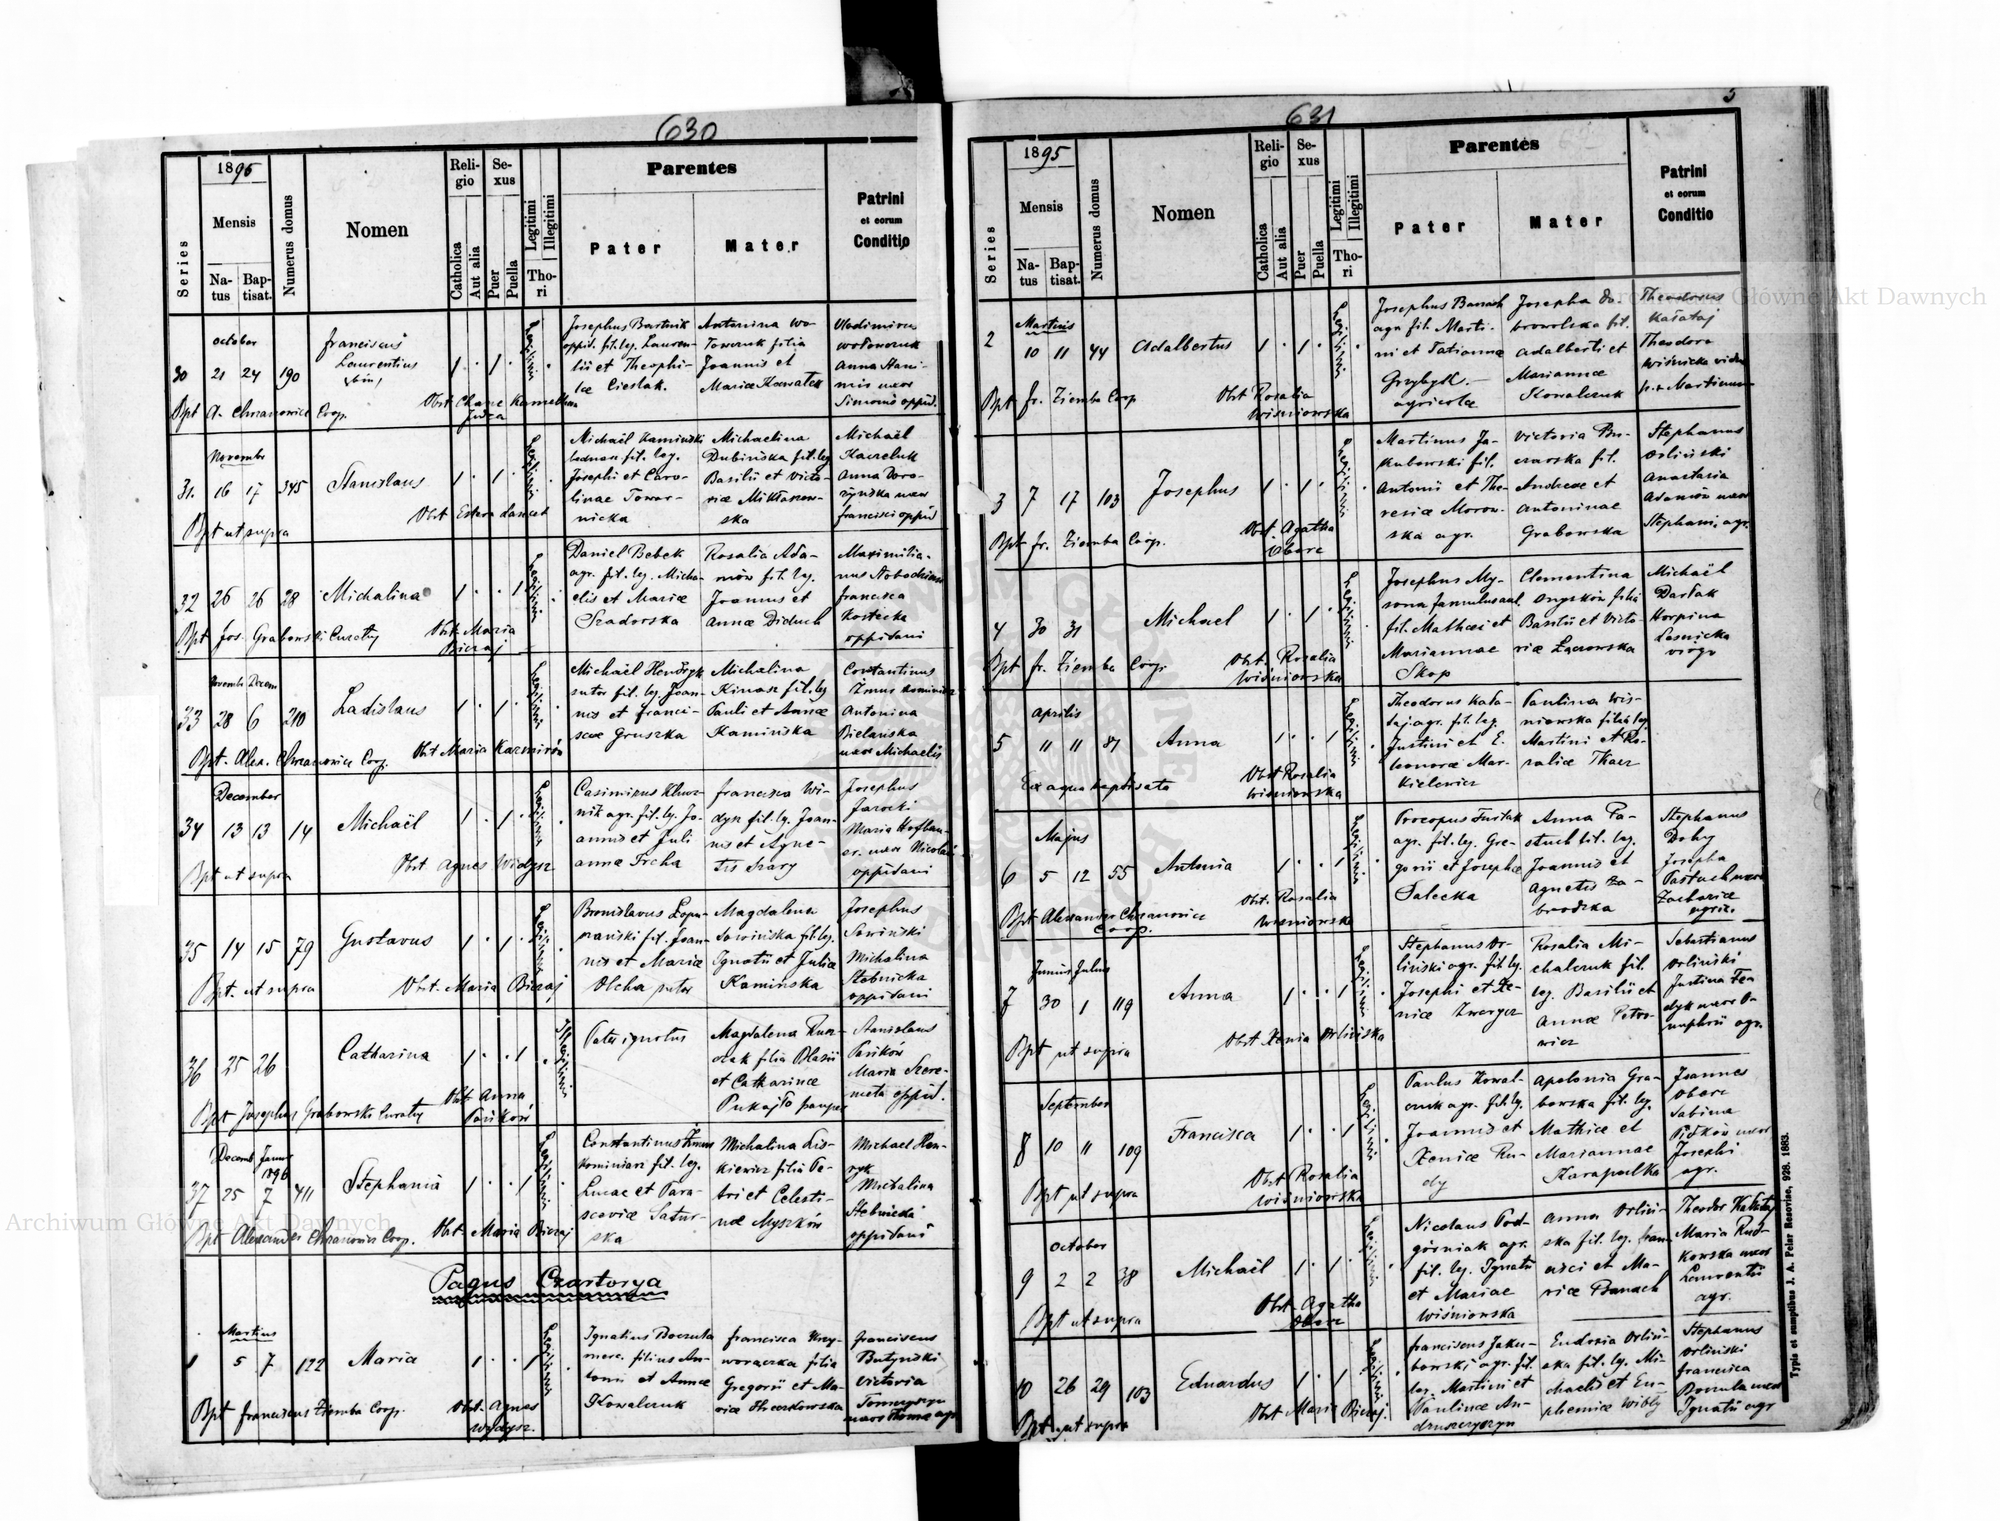 630
1895
Series
Mensis
Na-
tus
Bap-
tisat.
Numerus domus
Nomen
Reli-
gio
Catholica
Aut alia
Se-
xus
Puer
Puella
Legitimi
Illegitimi
Tho-
ri
Parentes
Pater
Mater
Patrini
et eorum
Conditio
October
30 21 24 190
Franciscus
Laurentius
Josephus Bartnik
oppid. fil. leg. Lauren-
tii et Theophi-
lae Cieślak.
Antonina Wo-
Joannis et
Mariae Kowalek
Vladimirus
Anna Hani-
Simonis oppid.
Bpt A. Chrzanowicz Coop.
November
31. 16 17 345
Stanislaus
Michaël Kamiński
fil. leg.
Josephi et Caro-
linae Towar-
nicka
Michaelina
Dubińska fil. leg.
Basilii et Victo-
riae Mikłaszew-
ska
Michaël
Kaczeluk
Anna Doro-
żyńska uxor
Francisci oppid
Bpt ut supra
32 26 26 28
Michalina
Daniel Bebek
agr. fil. leg. Micha-
elis et Mariae
Szadorska
Rosalia Ada-
mów fil. leg.
Joannis et
Annae Diduch
Maximilia-
nus
Francisca
Kostecka
oppidani
Bpt Jos. Grabowski Curatus
Obst. Maria
Bieraj
Novemb Decem
33 28 6 210
Ladislaus
Michaël Hendryk
sutor fil. leg. Joan-
nis et Franci-
scae Gruszka
Michalina
Kinasz fil. leg
Pauli et Annae
Kamińska
Constantinus
Żmus kominiarz
Antonina
Bielańska
uxor Michaelis
Bpt. Alex. Chrzanowicz Coop.
Obst Maria Kazmirów
December
34 13 13 14
Michaël
Casimirus Khuz-
nik agr. fil. leg. Jo-
annis et Juli
annae Trcha
Francisca Wi-
dyn fil. leg. Joan-
nis et Agne-
tis Szary
Josephus
Jarocki
Maria Hofbau-
er uxor Nicolai
oppidani
Bpt ut supra
Obst Agnes Widysz
35 14 15 79
Gustavus
Bronislavus Łopu-
szański fil. Joan-
nis et Mariae
Olcha
Magdalena
Sowińska fil. leg.
Ignatii et Juliae
Kamińska
Josephus
Sowiński
Michalina
Stebnicka
oppidani
Bpt. ut supra
Obst. Maria Bieraj
36 25 26
Catharina
Pater ignotus
Magdalena Kusz-
filia Blasii
et Catharinae
Pukajło pauper
Stanislaus
Pańków
Maria Szere-
meta oppid.
Bpt Josephus Grabowski Curatus
Obst Anna
Pańków
Decemb Januar
1896
37 25 7 411
Stephania
Constantinus Żmus
kominiarz fil. leg.
Lucae et Para-
scoviae Satur-
ska
Michalina Lis-
kiewicz filia Pe-
tri et Celesti-
nae Myszków
Michael Hen-
ryk
Michalina
Stebnicka
oppidani
Bpt Alexander Chrzanowicz Coop.
Obst. Maria Bieraj
Pagus Czartorya
Martius
1 5 7 122
Maria
Ignatius Boczula
merc. filius An-
tonii et Annae
Kowalczuk
Francisca Krzy-
woraczka filia
Gregorii et Ma-
riae
Franciscus
Butyński
Victoria
uxor Thomae agr
Bpt Franciscus Ziemba Coop.
Obst. Agnes
Widysz.
631
5
1895
Series
Mensis
Na-
tus
Bap-
tisat.
Numerus domus
Nomen
Reli-
gio
Catholica
Aut alia
Se-
xus
Puer
Puella
Legitimi
Illegitimi
Tho-
ri
Parentes
Pater
Mater
Patrini
et eorum
Conditio
Martius
2 10 11 44
Adalbertus
Josephus Banach
agr fil. Marti-
ni et Tatianna
Grzybyk.
agricolae
Josepha Do-
browolska fil.
Adalberti et
Mariannae
Kowalczuk
Theodorus
Kałataj
Theodora
Wiśnicka vidua
p. + Martinum
Bpt fr. Ziemba Coop
Obst Rosalia
Wiśniowska
3 7 17 103
Josephus
Martinus Ja-
kubowski fil.
Antonii et The-
resiae Morow-
ska agr.
Victoria Bu-
czowska fil.
Andreae et
Antoninae
Grabowska
Stephanus
Orliński
Anastasia
Adamów uxor
Stephani, agr.
Bpt fr. Ziemba Coop.
Obst. Agatha
Obarc
4 30 31
Michael
Josephus My-
sona famulus aul.
fil. Mathaei et
Mariannae
Skop
Clementina
Onyśków filia
Basilii et Victo-
riae Łazowska
Michaël
Darłak
Horpina
Lesnicka
virgo
Bpt fr. Ziemba Coop
Obst. Rosalia
Wiśniowska
Aprilis
5 11 11 81
Anna
Theodorus Kała-
taj agr. fil. leg.
Justini et E-
leonorae Mar-
kielewicz
Paulina Wis-
niowska filia leg
Martini et Ro-
saliae Tkacz
Ex aqua baptisata
Obst Rosalia
Wiśniowska
Majus
6 5 12 55
Antonia
Procopus Furtak
agr. fil. leg. Gre-
gorii et Josephae
Sałecka
Anna Pa-
stuch fil. leg.
Joannis et
Agnetis Za-
brodzka
Stephanus
Dohy
Josepha
Pastuch uxor
Zachariae
agric.
Bpt Alexander Chrzanowicz
Coop.
Obst. Rosalia
Wiśniowska
Junius Julius
7 30 1 119
Anna
Stephanus Or-
liński agr. fil. leg.
Josephi et Xe-
niae Zwergez
Rosalia Mi-
chalczuk fil.
leg. Basilii et
Annae Petro-
wicz
Sebastianus
Orliński
Justina Fe-
dyk uxor O-
nuphrii agr.
Bpt ut supra
Obst Xenia Orlińska
September
8 10 11 109
Francisca
Paulus Kowal-
czuk agr. fil. leg.
Joannis et
Xeniae Ru-
dy
Apolonia Gra-
bowska fil. leg.
Mathiae et
Mariannae
Karapulka
Joannes
Obarc
Sabina
Pidków uxor
Josephi
agr.
Bpt ut supra
Obst Rosalia
Wiśniowska
October
9 2 2 38
Michaël
Nicolaus Pod-
górniak agr.
fil. leg. Ignatii
et Mariae
Wiśniowska
Anna Orliń-
ska fil. leg. Fran-
cisci et Ma-
riae Banach
Theodor Kałataj
Maria Rud-
kowska uxor
Laurentii
agr.
Bpt ut supra
Obst. Agatha
Obarc
10 26 29 103
Eduardus
Franciscus Jaku-
bowski agr. fil.
leg. Martini et
Paulinae An-
druszczyszyn
Eudoxia Orliń-
ska fil. leg. Mi-
chaelis et Eu-
phemiae Wibly
Stephanus
Orliński
Francisca
Boczula uxor
Ignatii agr
Bpt ut supra
Obst Maria Bieraj
Typis et sumptibus J. A. Pelar Resoviae, 928. 1883.
Archiwum Główne Akt Dawnych
Archiwum Główne Akt Dawnych